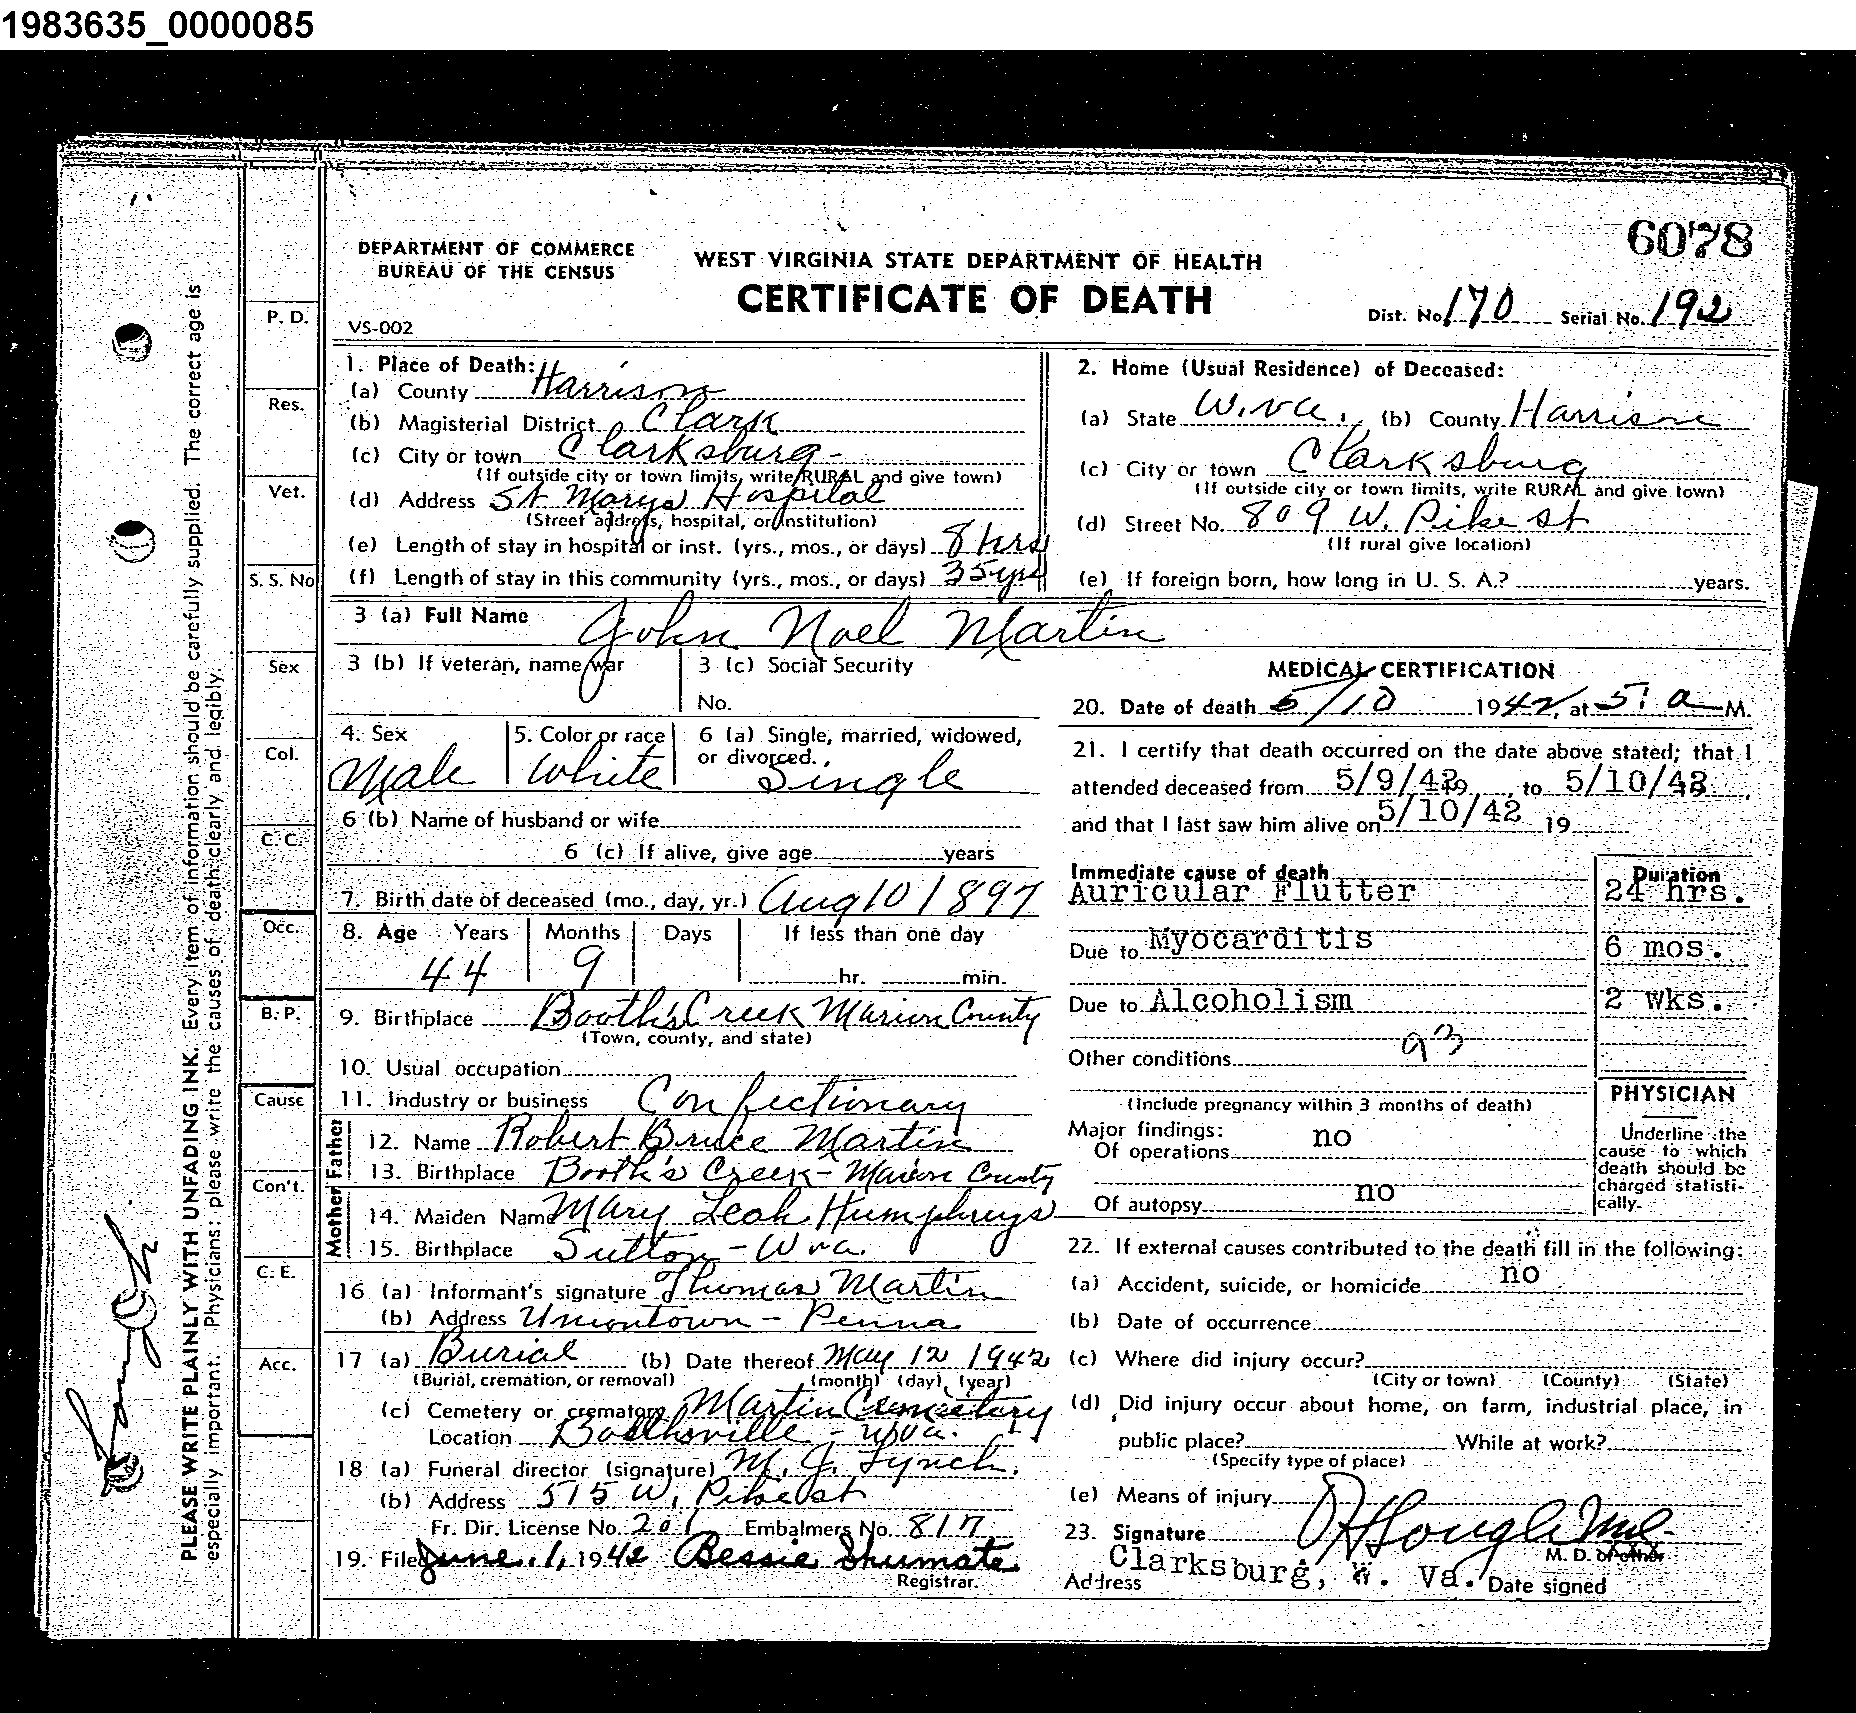 1983635_0000085
6078
DEPARTMENT OF COMMERCE
BUREAU OF THE CENSUS
WEST VIRGINIA STATE DEPARTMENT OF HEALTH
CERTIFICATE OF DEATH
VS-002
Dist. No. 170 Serial No. 192
PLEASE WRITE PLAINLY WITH UNFADING INK. Every item of information should be carefully supplied. The correct age is
especially important. Physicians: please write the causes of death clearly and legibly.
P. D.
Res.
Vet.
S. S. No
Sex
Col.
C. C.
Occ.
B. P.
Cause
Con't.
C. E.
Acc.
1. Place of Death:
(a) County Harrison
(b) Magisterial District Clark
(c) City or town Clarksburg
(If outside city or town limits, write RURAL and give town)
(d) Address St Marys Hospital
(Street address, hospital, or institution)
(e) Length of stay in hospital or inst. (yrs., mos., or days) 8 hrs
(f) Length of stay in this community (yrs., mos., or days) 35 yrs
2. Home (Usual Residence) of Deceased:
(a) State W.va. (b) County Harrison
(c) City or town Clarksburg
(If outside city or town limits, write RURAL and give town)
(d) Street No. 809 W. Pike st
(If rural give location)
(e) If foreign born, how long in U. S. A.? years.
3 (a) Full Name John Noel Martin
3 (b) If veteran, name war
3 (c) Social Security
No.
4. Sex Male
5. Color or race White
6 (a) Single, married, widowed,
or divorced. Single
6 (b) Name of husband or wife
6 (c) If alive, give age years
7. Birth date of deceased (mo., day, yr.) Aug 10 1897
8. Age Years Months Days If less than one day
44 9 hr. min.
9. Birthplace Booth's Creek Marion County
(Town, county, and state)
10. Usual occupation
11. Industry or business Confectionary
Father
12. Name Robert Bruce Martin
13. Birthplace Booth's Creek - Marion County
Mother
14. Maiden Name Mary Leah Humphreys
15. Birthplace Sutton - W va.
16 (a) Informant's signature Thomas Martin
(b) Address Uniontown - Penna
17 (a) Burial (b) Date thereof May 12 1942
(Burial, cremation, or removal) (month) (day) (year)
(c) Cemetery or crematory Martin Cemetery
Location Boothsville - W va.
18 (a) Funeral director (signature) M. J. Lynch.
(b) Address 515 W. Pike st
Fr. Dir. License No. 201 Embalmers No. 817
19. Filed June. 1, 1942 Bessie Shumate
Registrar.
MEDICAL CERTIFICATION
20. Date of death 5/10 1942, at 5: a M.
21. I certify that death occurred on the date above stated; that I
attended deceased from 5/9/42 19 , to 5/10/42
and that I last saw him alive on 5/10/42 19
Immediate cause of death Duration
Auricular Flutter 24 hrs.
Due to Myocarditis 6 mos.
Due to Alcoholism 2 wks.
93
Other conditions
(Include pregnancy within 3 months of death)
Major findings:
Of operations no
Of autopsy no
PHYSICIAN
Underline the
cause to which
death should be
charged statisti-
cally.
22. If external causes contributed to the death fill in the following:
(a) Accident, suicide, or homicide no
(b) Date of occurrence
(c) Where did injury occur?
(City or town) (County) (State)
(d) Did injury occur about home, on farm, industrial place, in
public place? While at work?
(Specify type of place)
(e) Means of injury
23. Signature Hough M.D.
M. D. or other
Address Clarksburg, W. Va. Date signed